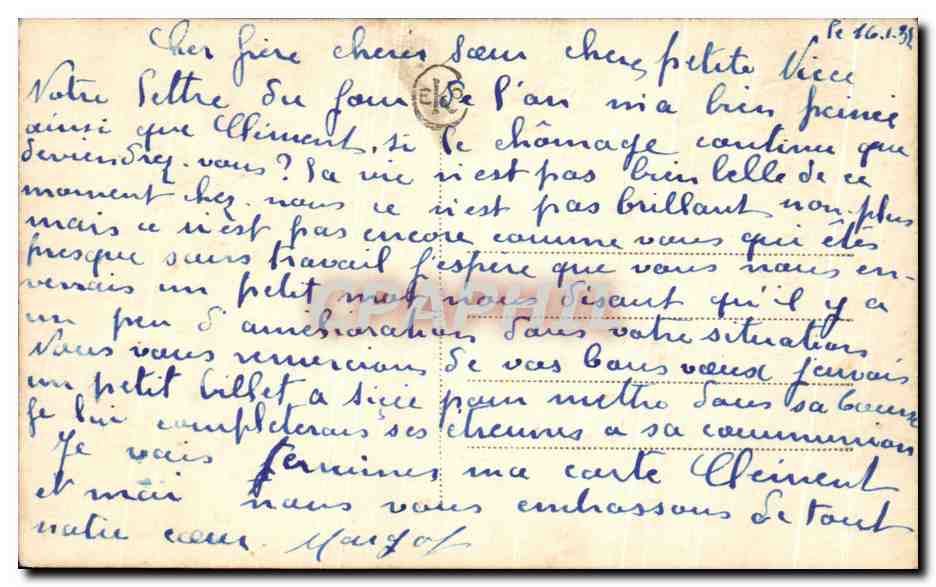 le 16.1.32
Cher frère cherie sœur chere petite Niece
Votre lettre du jour de l'an m'a bien peinée
ainsi que Clément, si le chômage continu que
deviendrez-vous? la vie n'est pas bien belle de ce
moment chez-nous ce n'est pas brillant non-plus
mais ce n'est pas encore comme vous qui êtes
presque sans travail j'espère que vous nous en-
verrais un petit mot nous disant qu'il y a
un peu d'amélioration dans votre situation
Nous vous remercions de vos bons vœux j'envais
un petit billet a pour mettre dans sa bourse
je lui completerais ses étrennes a sa communion
Je vais terminer ma carte Clément
et moi nous vous embrassons de tout
notre cœur. Margot
CPAPHIL